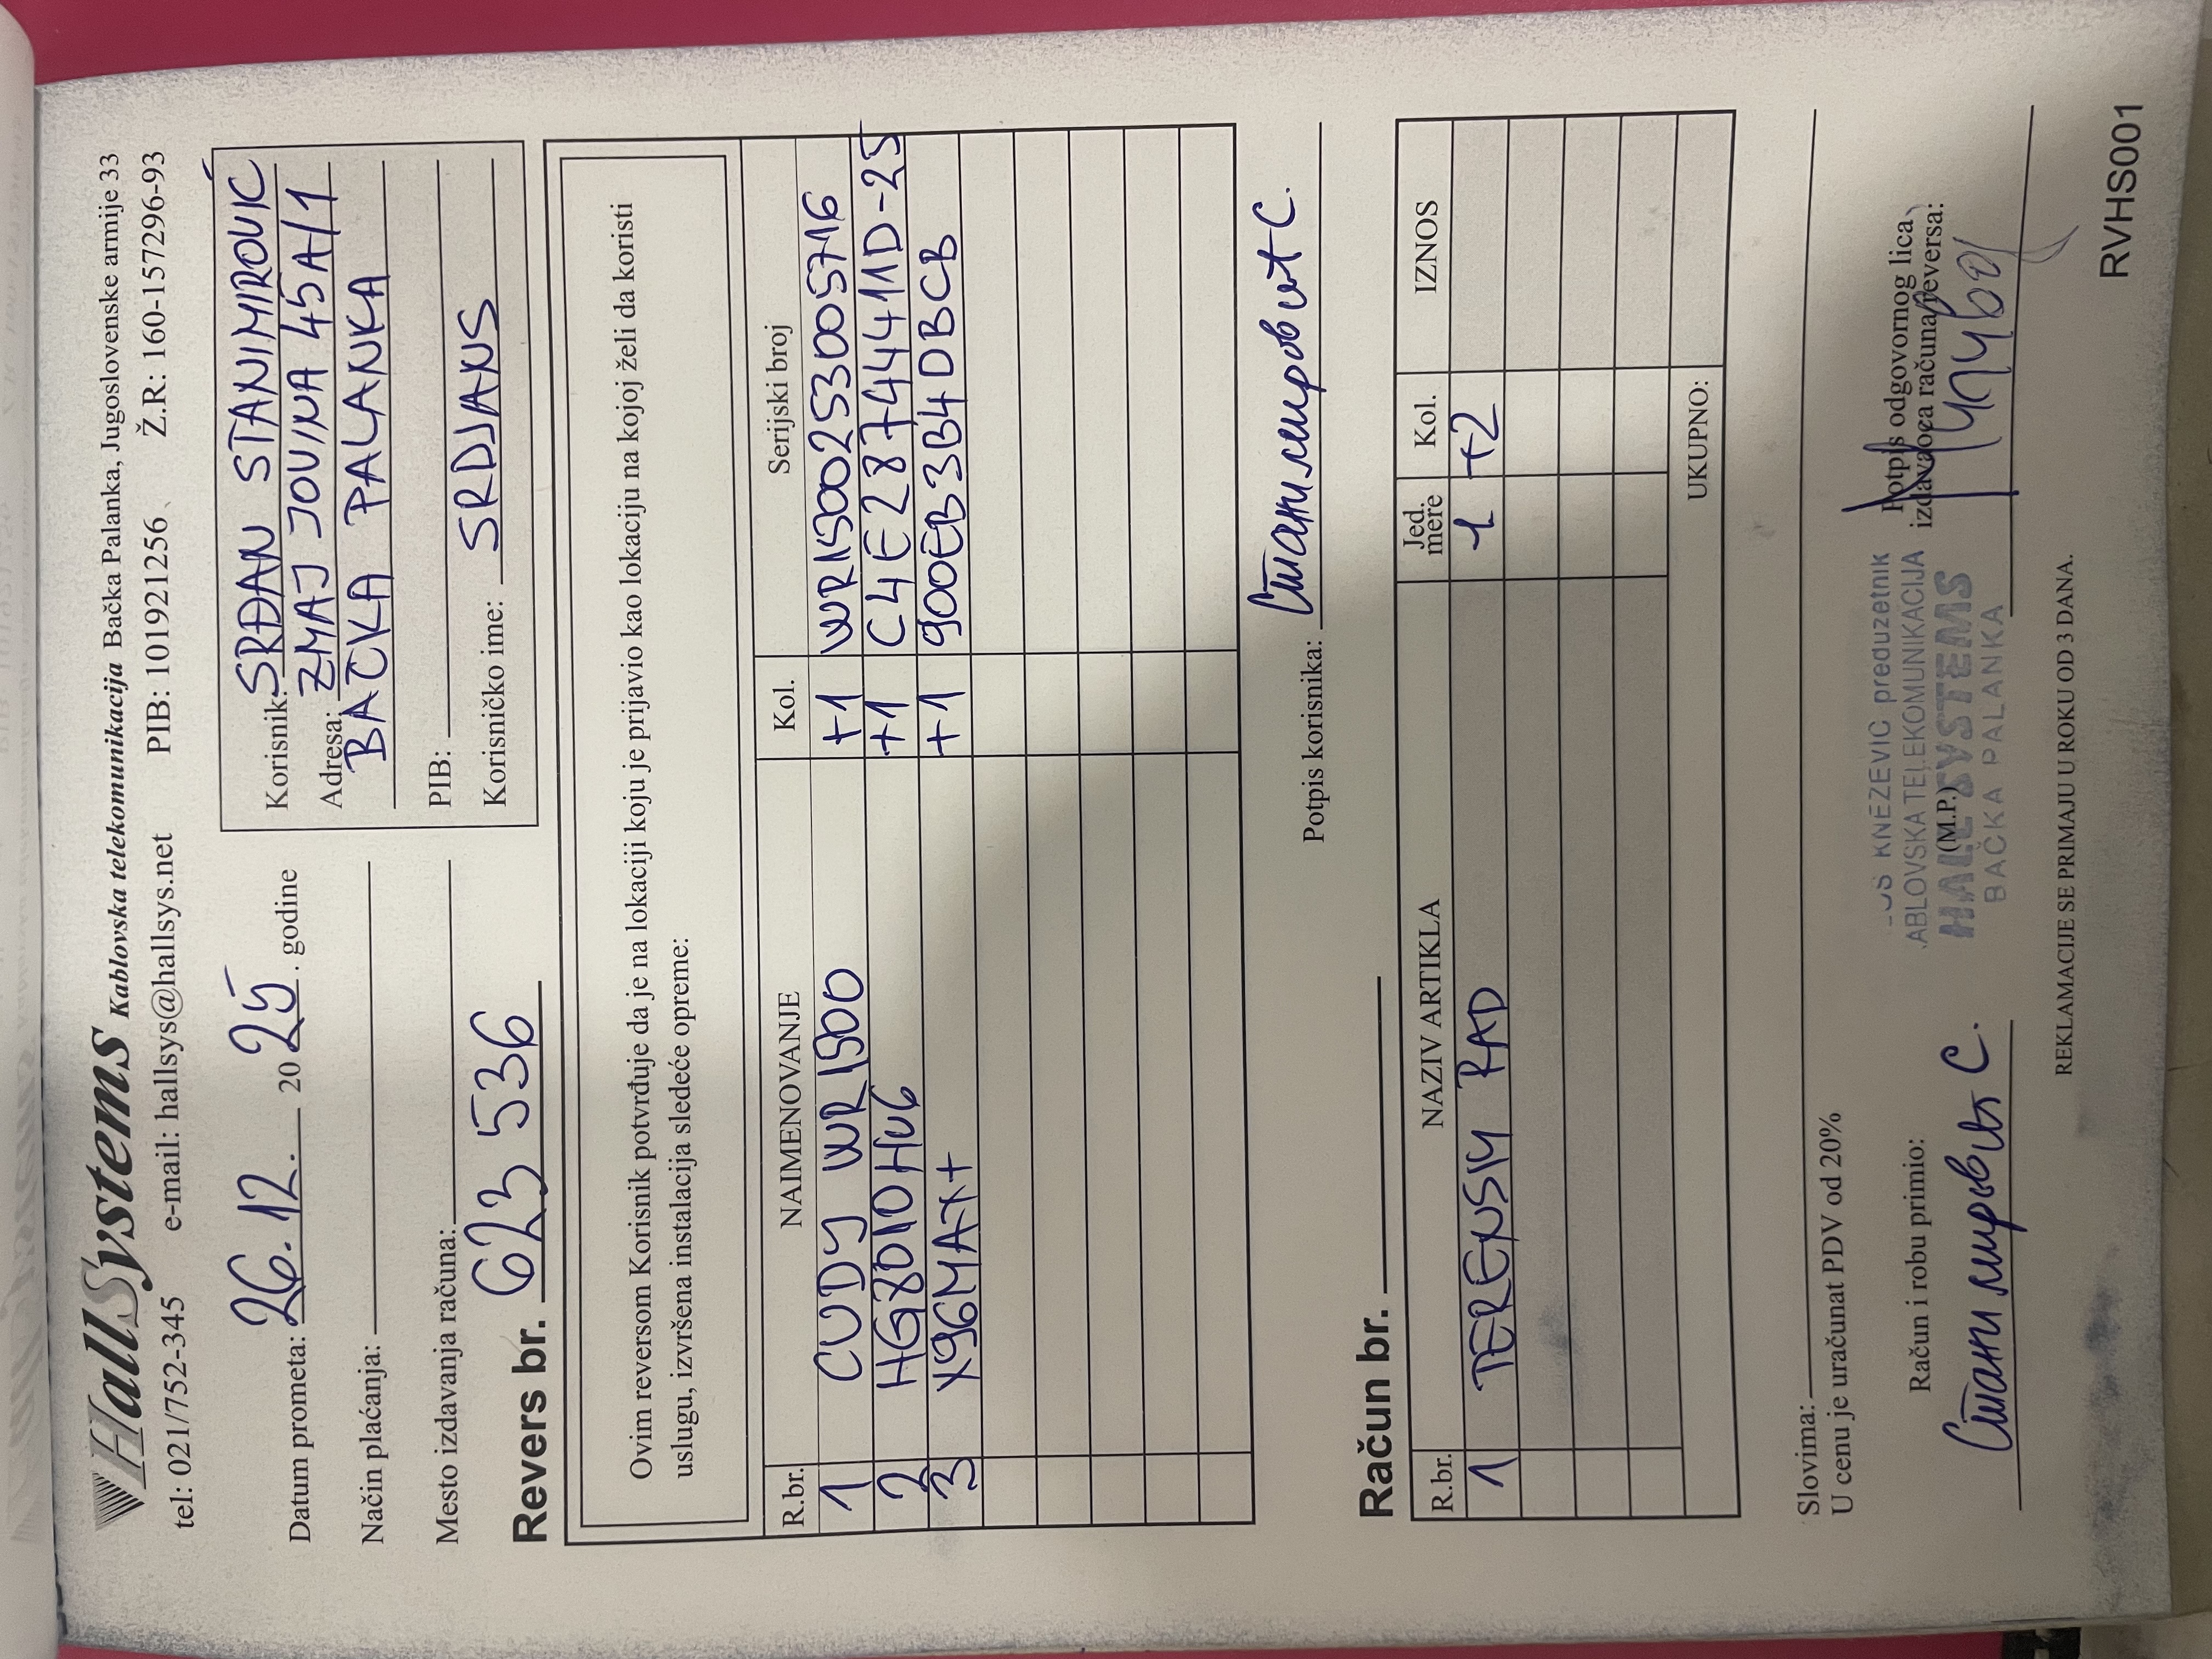 HallSystems Kablovska telekomunikacija Bačka Palanka, Jugoslovenske armije 33
tel: 021/752-345 e-mail: hallsys@hallsys.net PIB: 101921256 Ž.R: 160-157296-93
Datum prometa: 26.12. 2025. godine
Način plaćanja:
Mesto izdavanja računa:
Revers br. 623 536
Korisnik: SRĐAN STANIMIROVIĆ
Adresa: ZMAJ JOVINA 45A/1
BAČKA PALANKA
PIB:
Korisničko ime: SRDJANS
Ovim reversom Korisnik potvrđuje da je na lokaciji koju je prijavio kao lokaciju na kojoj želi da koristi
uslugu, izvršena instalacija sledeće opreme:
R.br. NAIMENOVANJE Kol. Serijski broj
1 CUDY WR1500 +1 WR1500253005716
2 HG8010Hv6 +1 C4E28744411D-25
3 X96MAX+ +1 900EB3B4DBCB
Potpis korisnika: Станимировић С.
Račun br.
R.br. NAZIV ARTIKLA Jed. mere Kol. IZNOS
1 TERENSKI RAD 1 +2
UKUPNO:
Slovima:
U cenu je uračunat PDV od 20%
Račun i robu primio:
Станимировић С.
KNEZEVIC preduzetnik
ABLOVSKA TELEKOMUNIKACIJA
(M.P.)
HALL SYSTEMS
BAČKA PALANKA
Potpis odgovornog lica,
izdavaoca računa/reversa:
REKLAMACIJE SE PRIMAJU U ROKU OD 3 DANA.
RVHS001